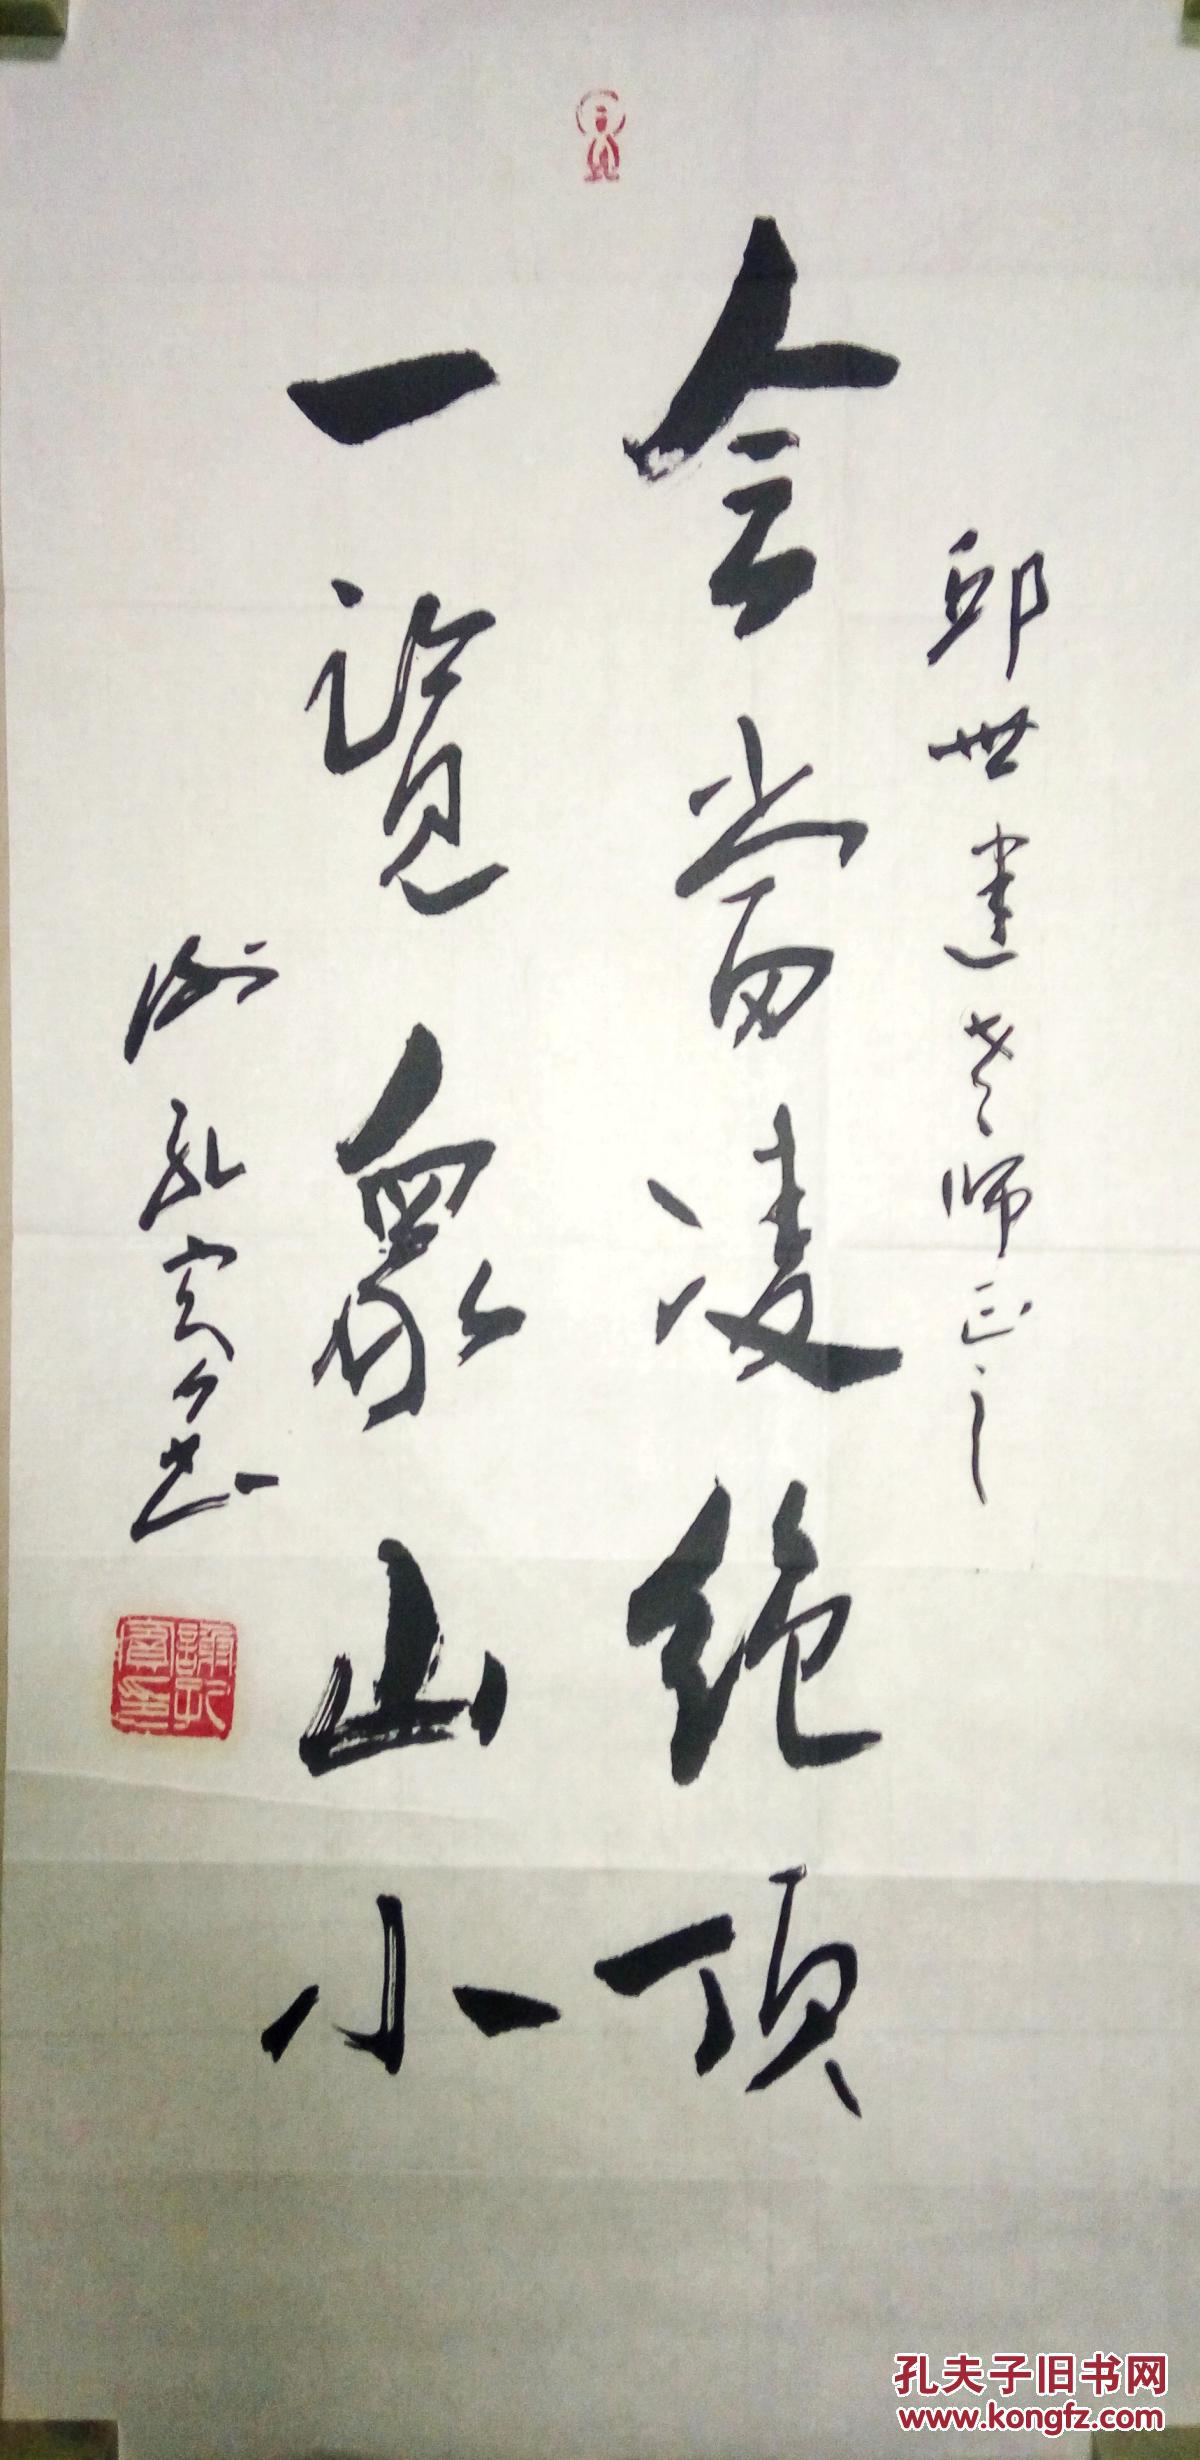 邱世建老师正之
会当凌绝顶
一览众山小
谢孔宾书
孔夫子旧书网
www.kongfz.com